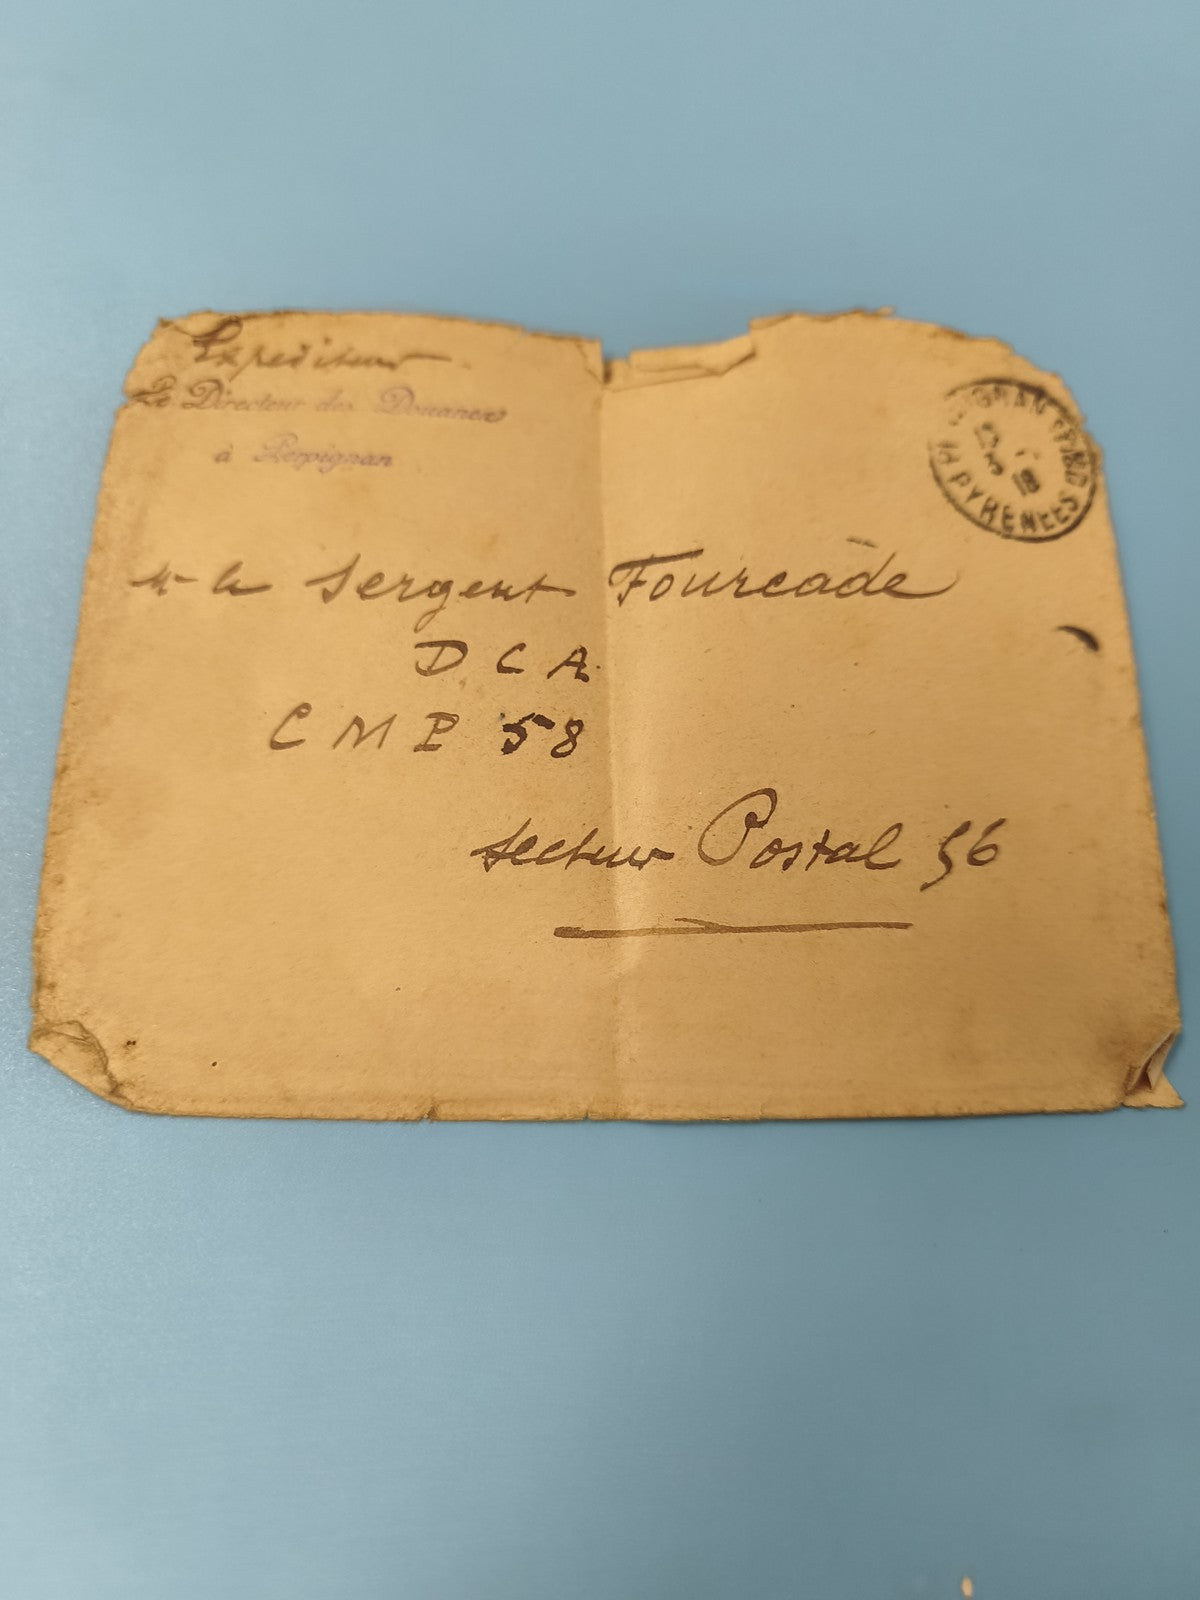 Expediteur
Le Directeur des Douanes
à Perpignan
PYRENEES
Mr le Sergent Fourcade
D C A
C M P 58
secteur Postal 56